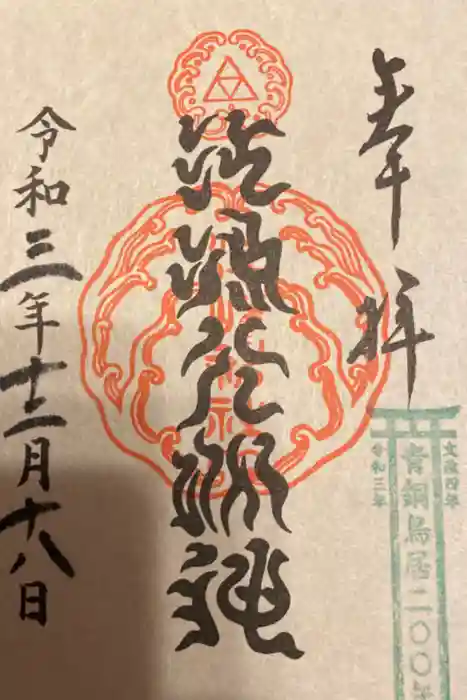 奉拝
江嶋大明神
令和三年十二月十八日
文政四年
青銅鳥居二〇〇年
令和三年